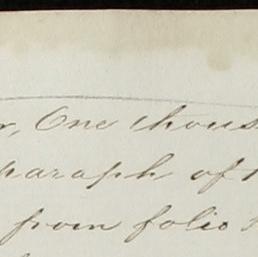 One thous
paraph of
from folio